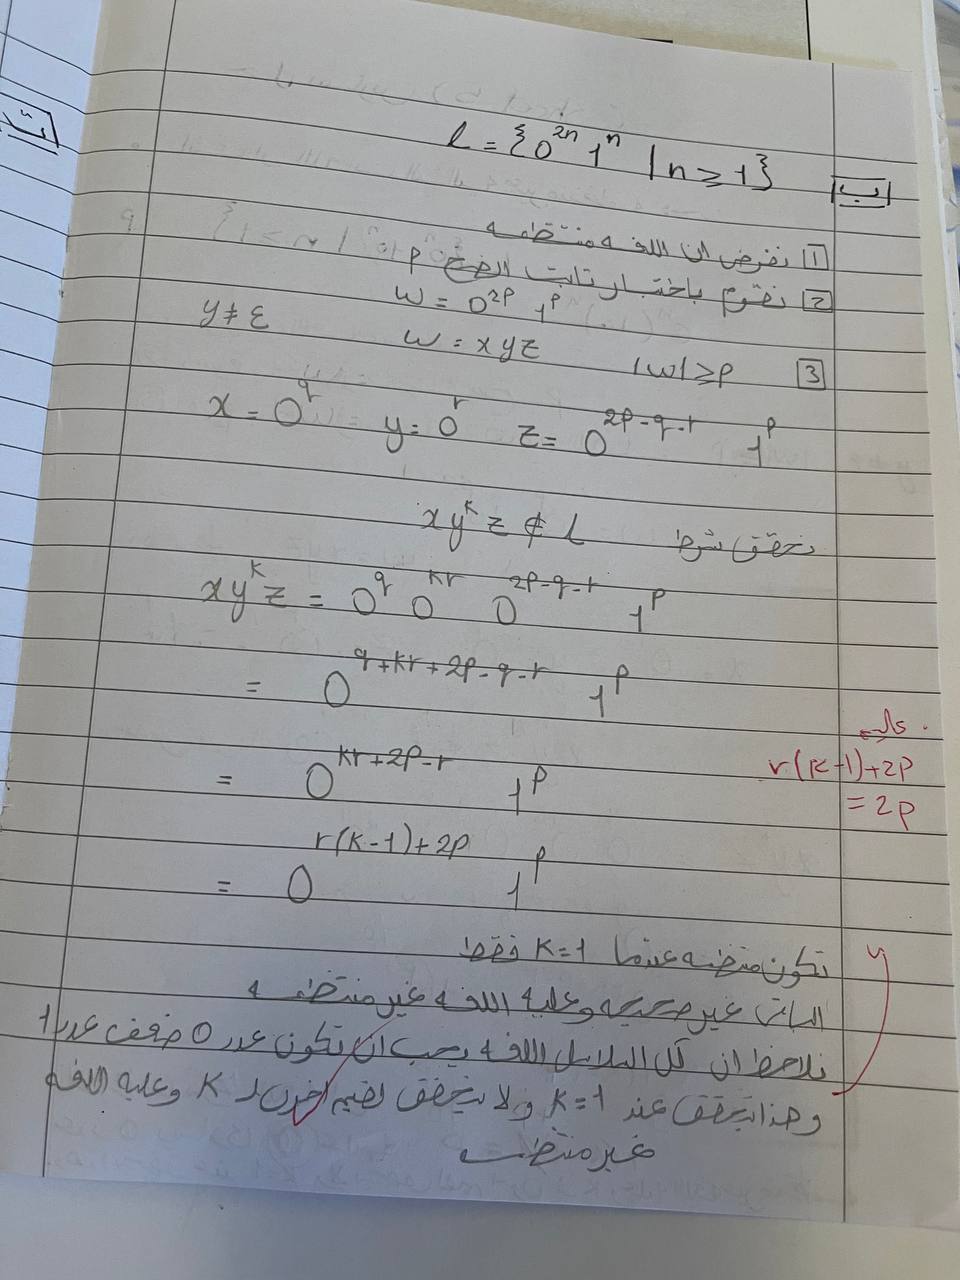 ب
L = {0^{2n} 1^n | n ≥ 1}
1 نفرض ان اللغه منتظمه
2 نقوم باختبار ثابت الضخ p
w = 0^{2p} 1^p
y ≠ ε
3 |w| ≥ p w = xyz
x = 0^q y = 0^r z = 0^{2p-q-r} 1^p
نحقق شرط xy^k z ∉ L
xy^k z = 0^q 0^{kr} 0^{2p-q-r} 1^p
= 0^{q+kr+2p-q-r} 1^p
= 0^{kr+2p-r} 1^p
r(k-1)+2p
= 2p
= 0^{r(k-1)+2p} 1^p
تكون منتظمه عندما k=1 فقط
الباقي غير صحيحه وعليه اللغه غير منتظمه
نلاحظ ان كل السلاسل اللغه يجب ان تكون عدد 0 ضعف عدد 1
وهذا تحقق عند k=1 ولا يتحقق لقيم اخرى لـ k وعليه اللغه
غير منتظمه